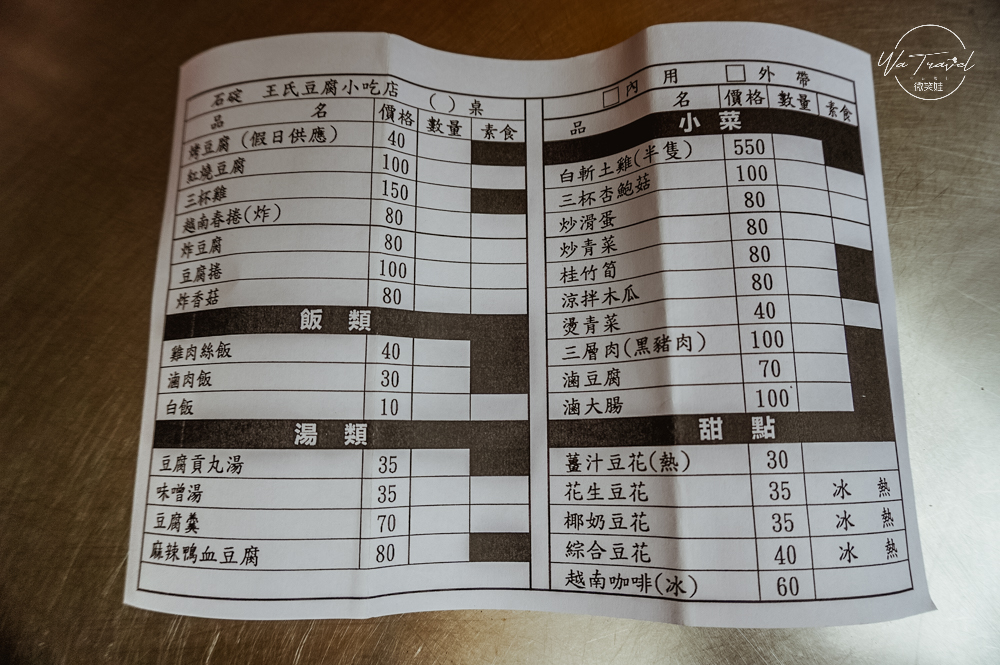 石碇 王氏豆腐小吃店 ( ) 桌
品 名 價格 數量 素食
烤豆腐(假日供應) 40
紅燒豆腐 100
三杯雞 150
越南春捲(炸) 80
炸豆腐 80
豆腐捲 100
炸香菇 80
飯類
雞肉絲飯 40
滷肉飯 30
白飯 10
湯類
豆腐貢丸湯 35
味噌湯 35
豆腐羹 70
麻辣鴨血豆腐 80
□內用 □外帶
品 名 價格 數量 素食
小菜
白斬土雞(半隻) 550
三杯杏鮑菇 100
炒滑蛋 80
炒青菜 80
桂竹筍 80
涼拌木瓜 80
燙青菜 40
三層肉(黑豬肉) 100
滷豆腐 70
滷大腸 100
甜點
薑汁豆花(熱) 30
花生豆花 35 冰 熱
椰奶豆花 35 冰 熱
綜合豆花 40 冰 熱
越南咖啡(冰) 60
Wa Travel
微笑娃